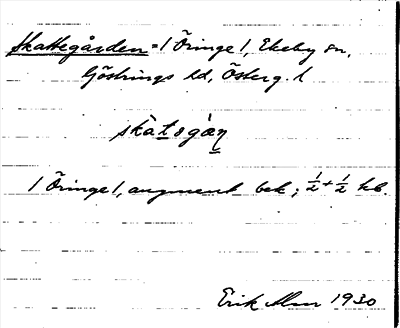 Skattegården = 1 Öringe 1, Ekeby sn,
Göstrings hd, Österg. l
skàtogàṇ
1 Öringe 1, augment bek; ½ + ½ hb.
Erik Alm 1930